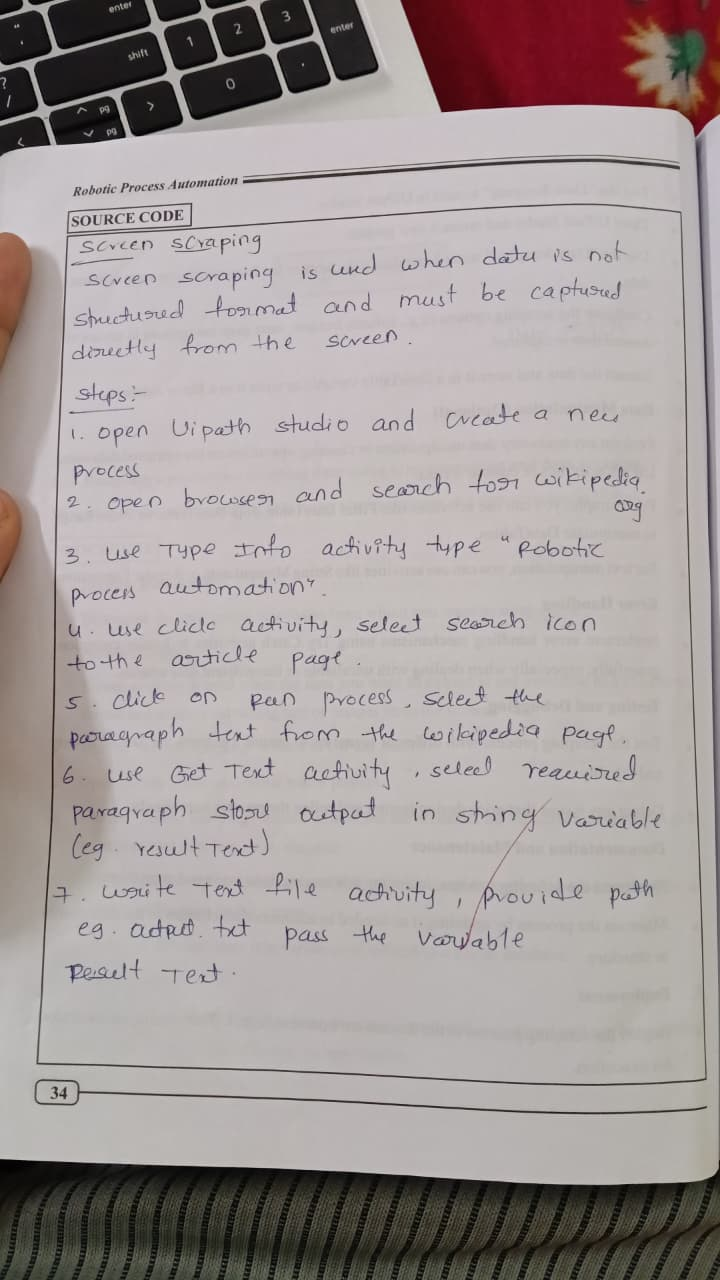 enter
shift
1
2
3
enter
0
.
?
/
>
<
pg
pg
Robotic Process Automation
SOURCE CODE
Screen scraping
Screen scraping is used when data is not
structured format and must be captured
directly from the screen.
steps:-
1. open Uipath studio and create a new
process
2. open browser and search for wikipedia.
org
3. use Type Into activity type "Robotic
process automation".
4. use click activity, select search icon
to the article page.
5. click on Run process, select the
paragraph text from the wikipedia page.
6. use Get Text activity, select required
paragraph store output in string variable
(eg. result Text)
7. write Text file activity, provide path
eg. output.txt pass the variable
Result Text.
34